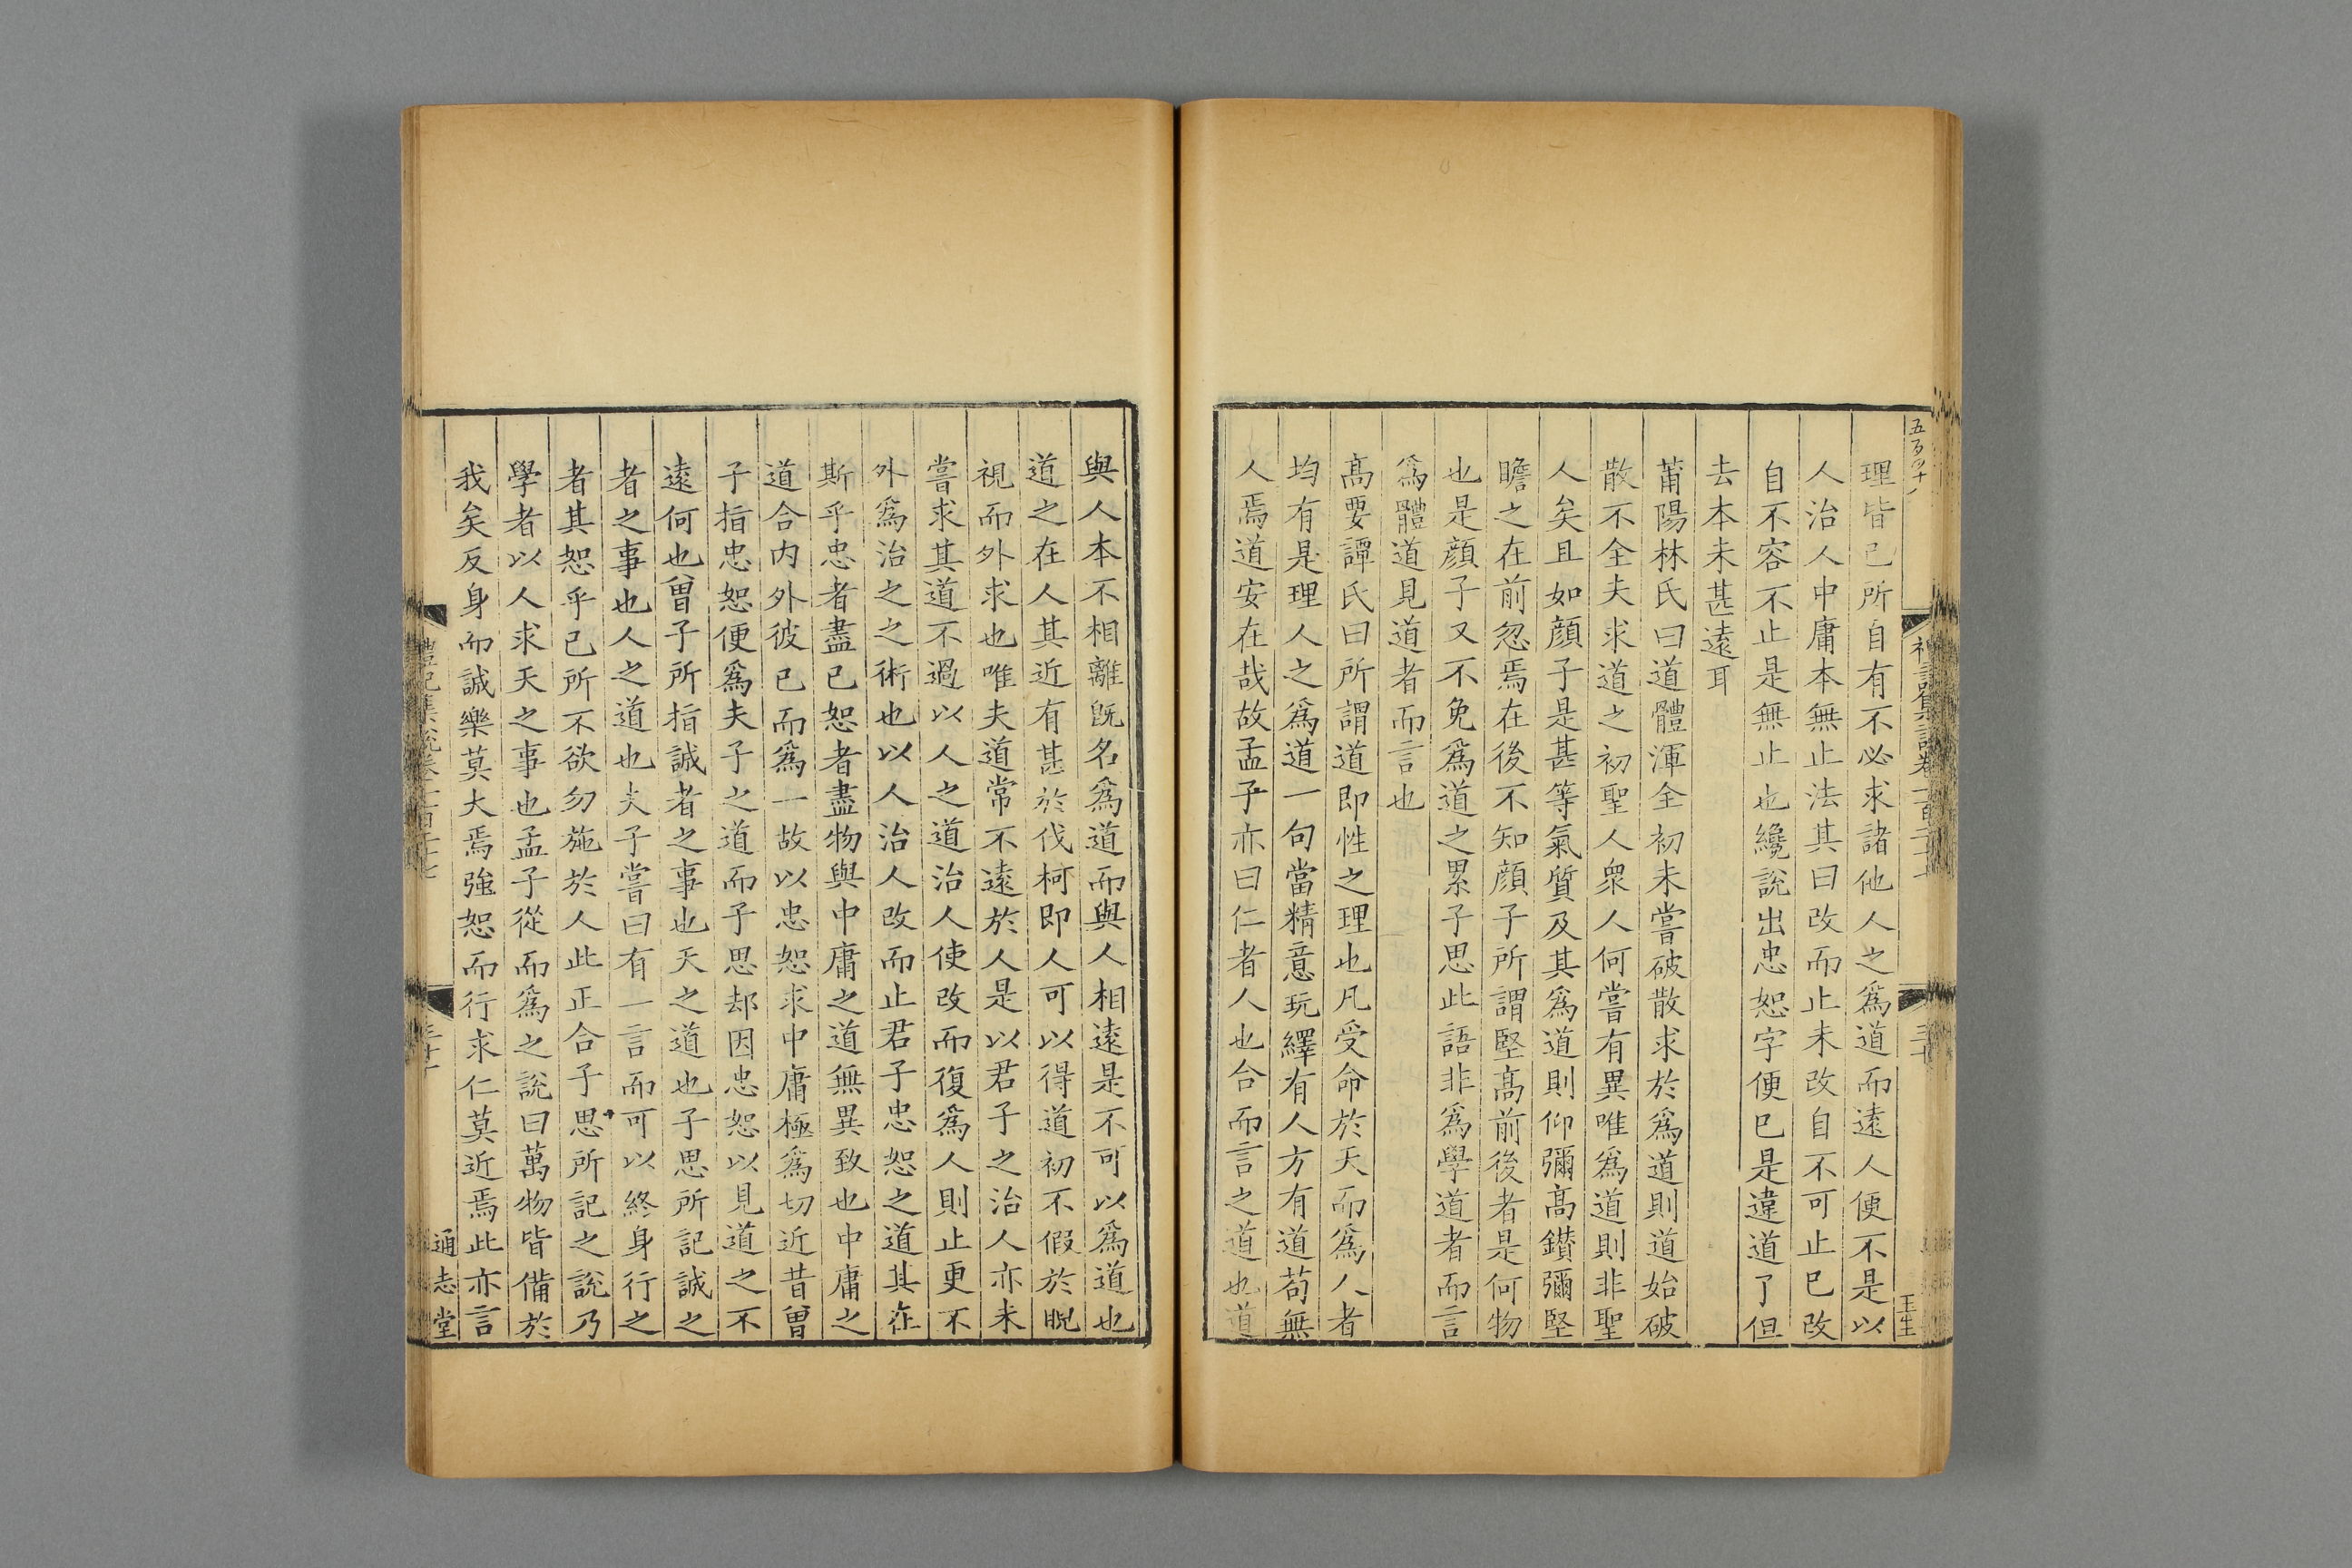 理皆己所自有不必求諸他人之爲道而遠人便不是以
人治人中庸本無止法其曰改而止未改自不可止巳改
自不容不止是無止也纔說出忠恕字便巳是違道了但
去本未甚遠耳
莆陽林氏曰道體渾全初未嘗破散求於爲道則道始破
散不全夫求道之初聖人衆人何嘗有異唯爲道則非聖
人矣且如顔子是甚等氣質及其爲道則仰彌髙鑚彌堅
瞻之在前忽焉在後不知顔子所謂堅髙前後者是何物
也是顔子又不免爲道之累子思此語非爲學道者而言
爲體道見道者而言也
髙要譚氏曰所謂道即性之理也凡受命於天而爲人者
均有是理人之爲道一句當精意玩繹有人方有道苟無
人焉道安在哉故孟子亦曰仁者人也合而言之道也道
王生
與人本不相離旣名爲道而與人相遠是不可以爲道也
道之在人其近有甚於伐柯即人可以得道初不假於睨
視而外求也唯夫道常不遠於人是以君子之治人亦未
嘗求其道不過以人之道治人使改而復爲人則止更不
外爲治之之術也以人治人改而止君子忠恕之道其在
斯乎忠者盡已恕者盡物與中庸之道無異致也中庸之
道合内外彼已而爲一故以忠恕求中庸極爲切近昔曾
子指忠恕便爲夫子之道而子思却因忠恕以見道之不
遠何也曾子所指誠者之事也天之道也子思所記誠之
者之事也人之道也夫子嘗曰有一言而可以終身行之
者其恕乎己所不欲勿施於人此正合子思所記之說乃
學者以人求天之事也孟子從而爲之說曰萬物皆備於
我矣反身而誠樂莫大焉強恕而行求仁莫近焉此亦言
通志堂